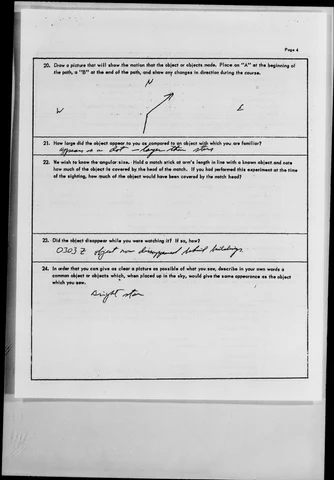 Page 4
20. Draw a picture that will show the motion that the object or objects made. Place an "A" at the beginning of
the path, a "B" at the end of the path, and show any changes in direction during the course.
N
W
E
21. How large did the object appear to you as compared to an object with which you are familiar?
appears as a dot - larger than stars
22. We wish to know the angular size. Hold a match stick at arm's length in line with a known object and note
how much of the object is covered by the head of the match. If you had performed this experiment at the time
of the sighting, how much of the object would have been covered by the match head?
23. Did the object disappear while you were watching it? If so, how?
0303 Z object now disappeared behind buildings.
24. In order that you can give as clear a picture as possible of what you saw, describe in your own words a
common object or objects which, when placed up in the sky, would give the same appearance as the object
which you saw.
Bright star